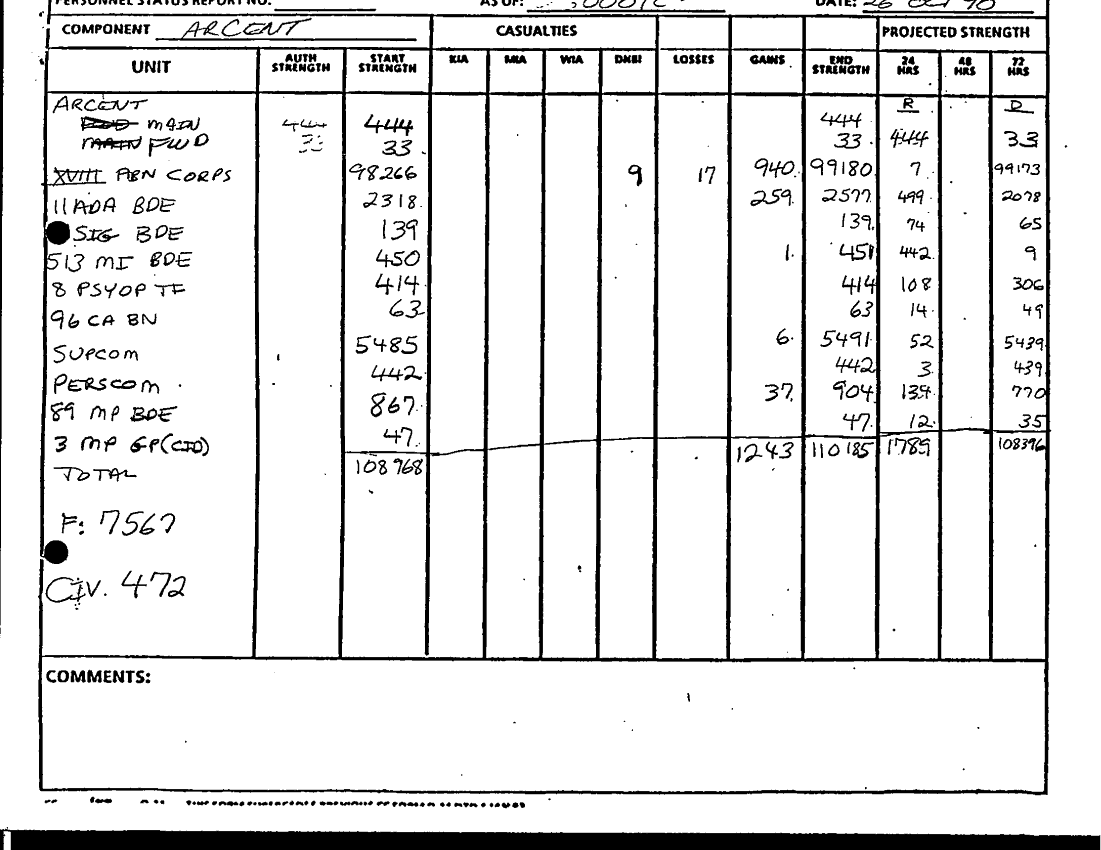 PERSONNEL STATUS REPORT NO. AS OF: DATE: 26 OCT 90
COMPONENT ARCENT CASUALTIES PROJECTED STRENGTH
UNIT AUTH STRENGTH START STRENGTH KIA MIA WIA DNBI LOSSES GAINS END STRENGTH 24 HRS 48 HRS 72 HRS
ARCENT R D
FWD MAIN 444 444 444
MAIN FWD 33 33 33 444 33
XVIII ABN CORPS 98266 9 17 940 99180 7 99173
11 ADA BDE 2318 259 2577 499 2078
SIG BDE 139 139 74 65
513 MI BDE 450 1 451 442 9
8 PSYOP TF 414 414 108 306
96 CA BN 63 63 14 49
SUPCOM 5485 6 5491 52 5439
PERSCOM 442 442 3 439
89 MP BDE 867 37 904 134 770
3 MP GP(CID) 47 47 12 35
TOTAL 108968 1243 110185 1789 108396
F: 7567
CIV. 472
COMMENTS: